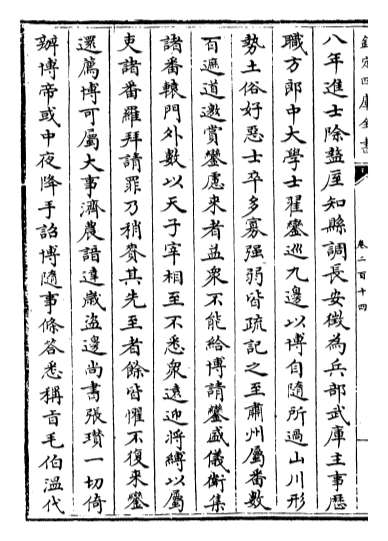 欽定四庫全書
卷二百十四
八年進士除盩厔知縣調長安徵為兵部武庫主事歷
職方郎中大學士翟鑾巡九邊以博自隨所過山川形
勢土俗好惡士卒多寡强弱皆疏記之至肅州屬番數
百遮道邀賞鑾慮來者益衆不能給博請鑾盛儀衛集
諸番轅門外數以天子宰相至不悉衆遠迎將縛以屬
吏諸番羅拜請罪乃稍賚其先至者餘皆懼不復來鑾
還薦博可屬大事濟農諳達嵗盜邊尚書張瓚一切倚
辦博帝或中夜降手詔博隨事條答悉稱旨毛伯溫代